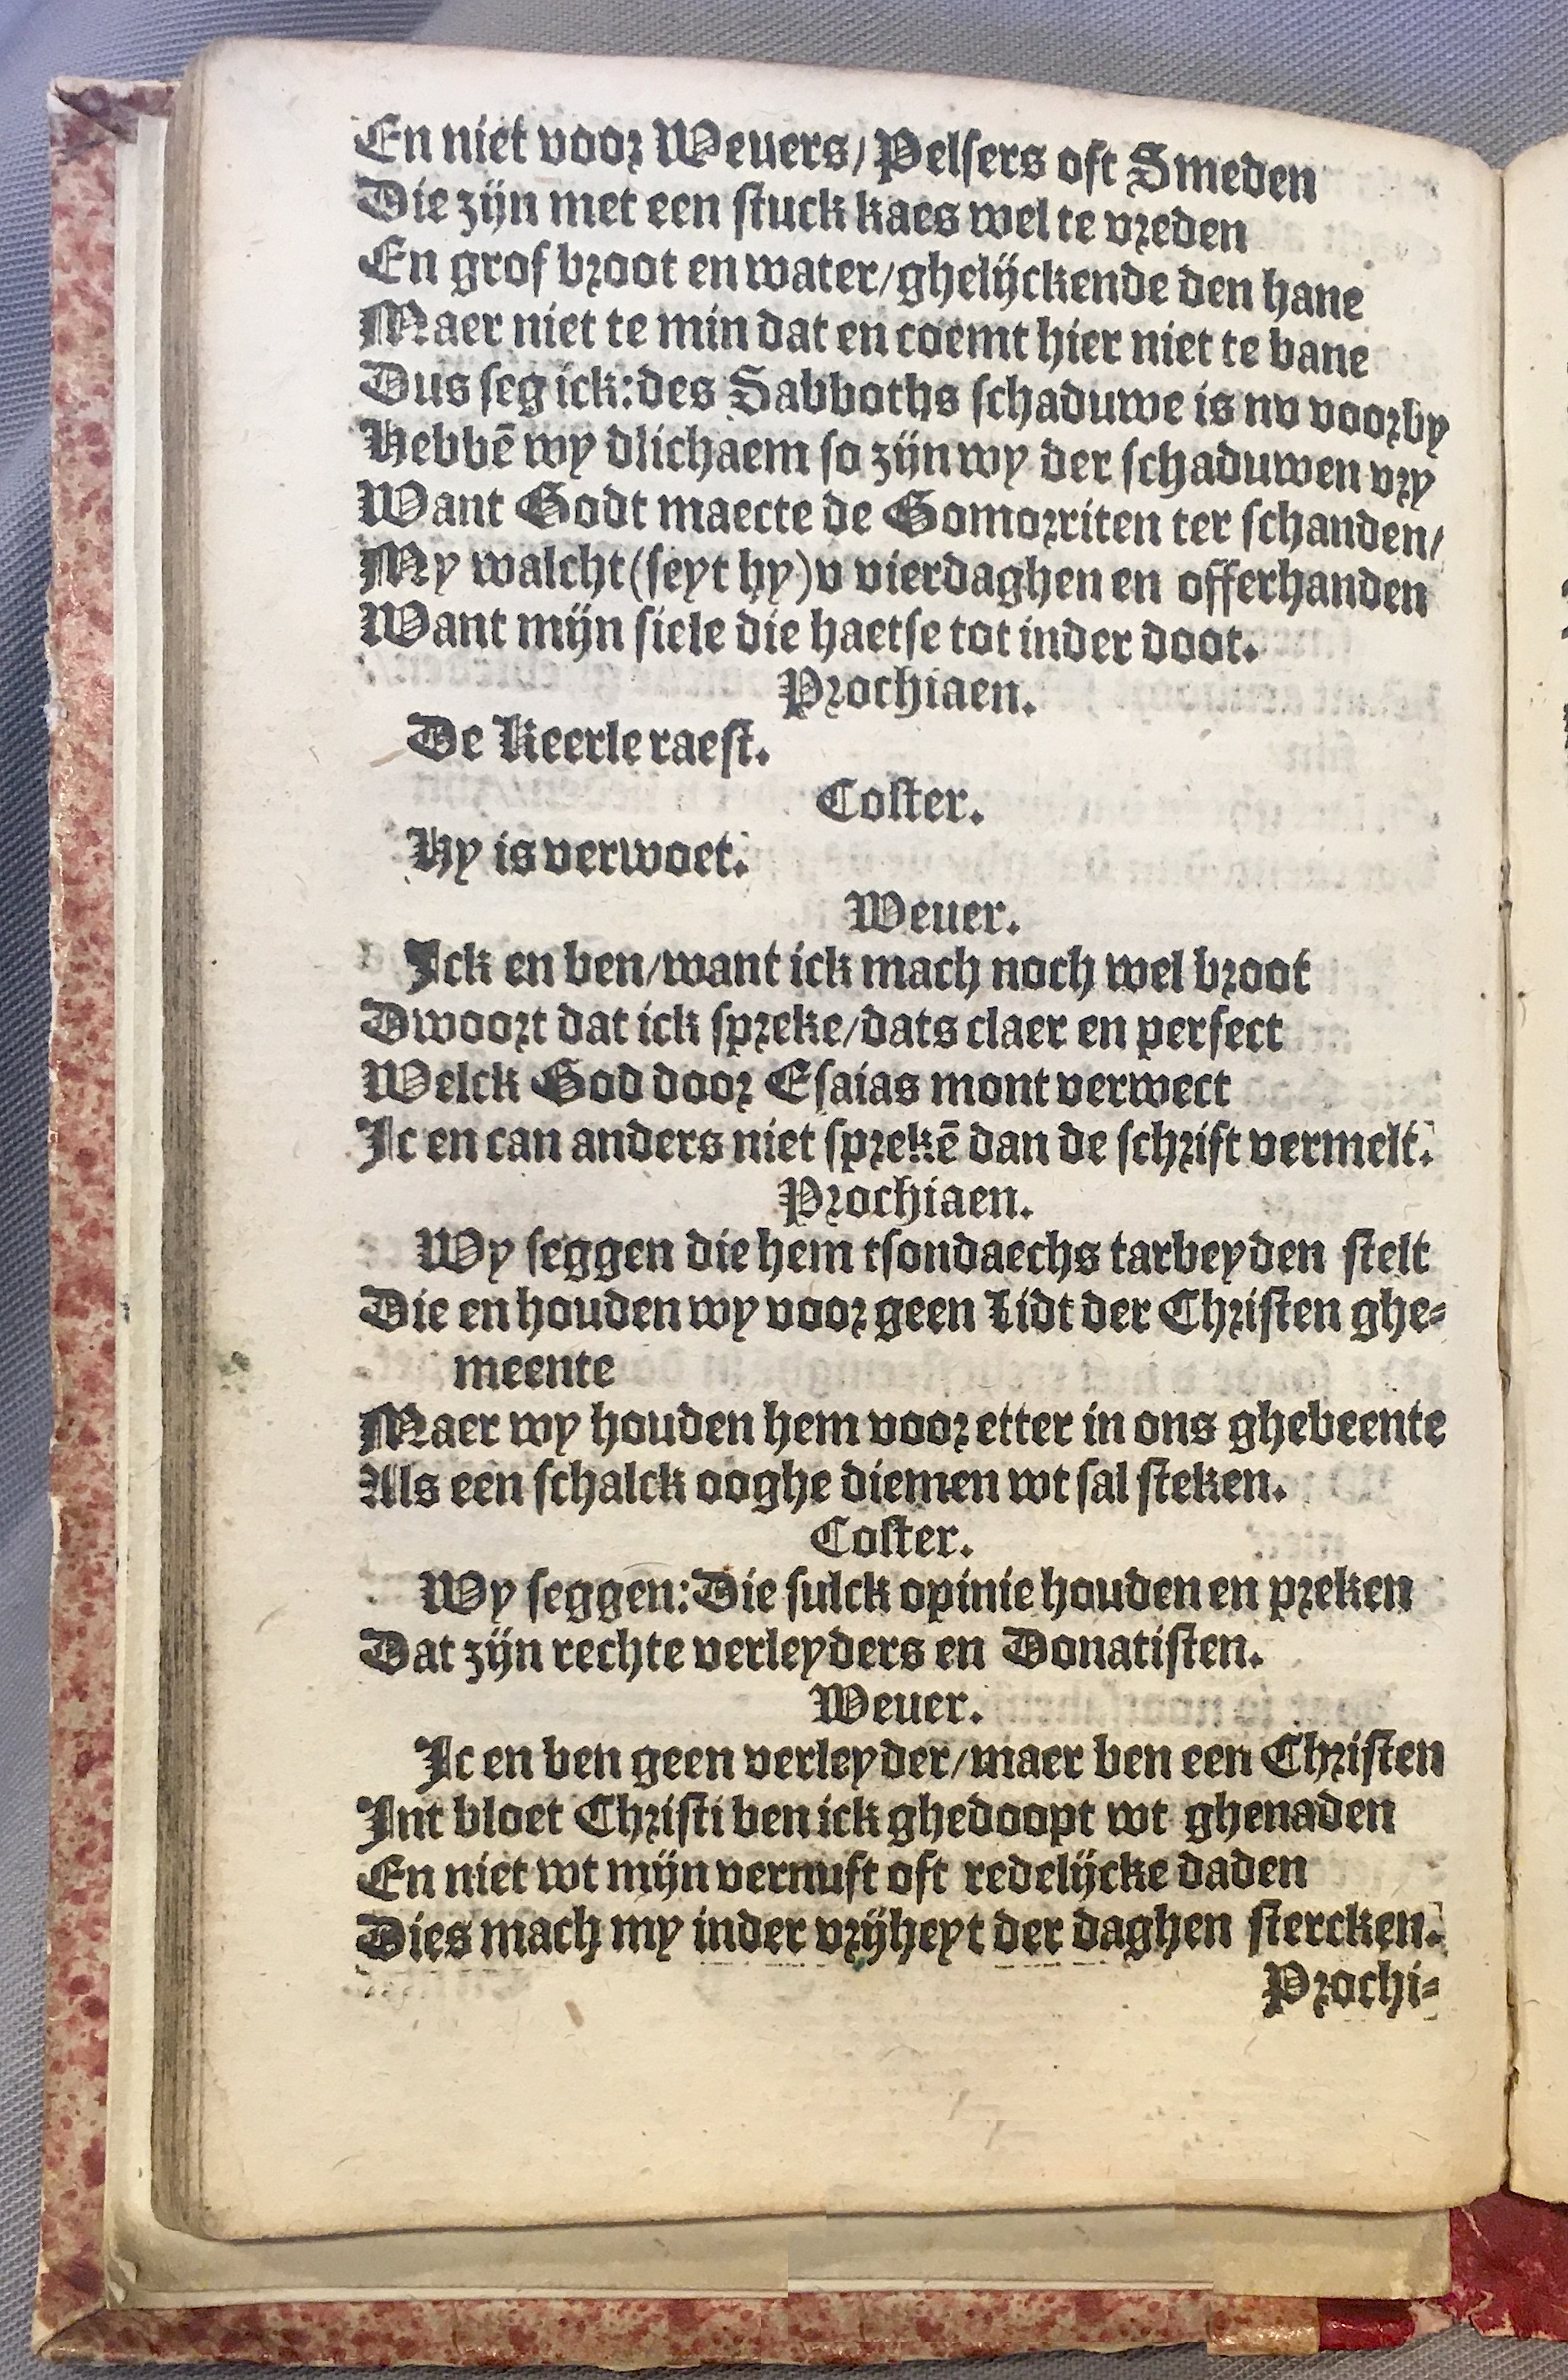 En niet voor Weuers/Pelsers oft Smeden
Die zijn met een stuck kaes wel te vreden
En grof broot en water/ghelijckende den hane
Maer niet te min dat en coemt hier niet te bane
Dus seg ick:des Sabboths schaduwe is nv voorby
Hebbē wy dlichaem so zijn wy der schaduwen vry
Want Godt maecte de Gomorriten ter schanden/
My walcht(seyt hy)v vierdaghen en offerhanden
Want mijn siele die haetse tot inder doot.
Prochiaen.
De Keerle raest.
Coster.
Hy is verwoet.
Weuer.
Ick en ben/want ick mach noch wel broot
Dwoort dat ick spreke/dats claer en perfect
Welck God door Esaias mont verwect
Ic en can anders niet sprekē dan de schrift vermelt.
Prochiaen.
Wy seggen die hem tsondaechs tarbeyden stelt
Die en houden wy voor geen Lidt der Christen ghe=
meente
Maer wy houden hem voor etter in ons ghebeente
Als een schalck ooghe diemen wt sal steken.
Coster.
Wy seggen:Die sulck opinie houden en preken
Dat zijn rechte verleyders en Donatisten.
Weuer.
Ic en ben geen verleyder/maer ben een Christen
Int bloet Christi ben ick ghedoopt wt ghenaden
En niet wt mijn vernuft oft redelijcke daden
Dies mach my inder vrijheyt der daghen stercken.
Prochi=